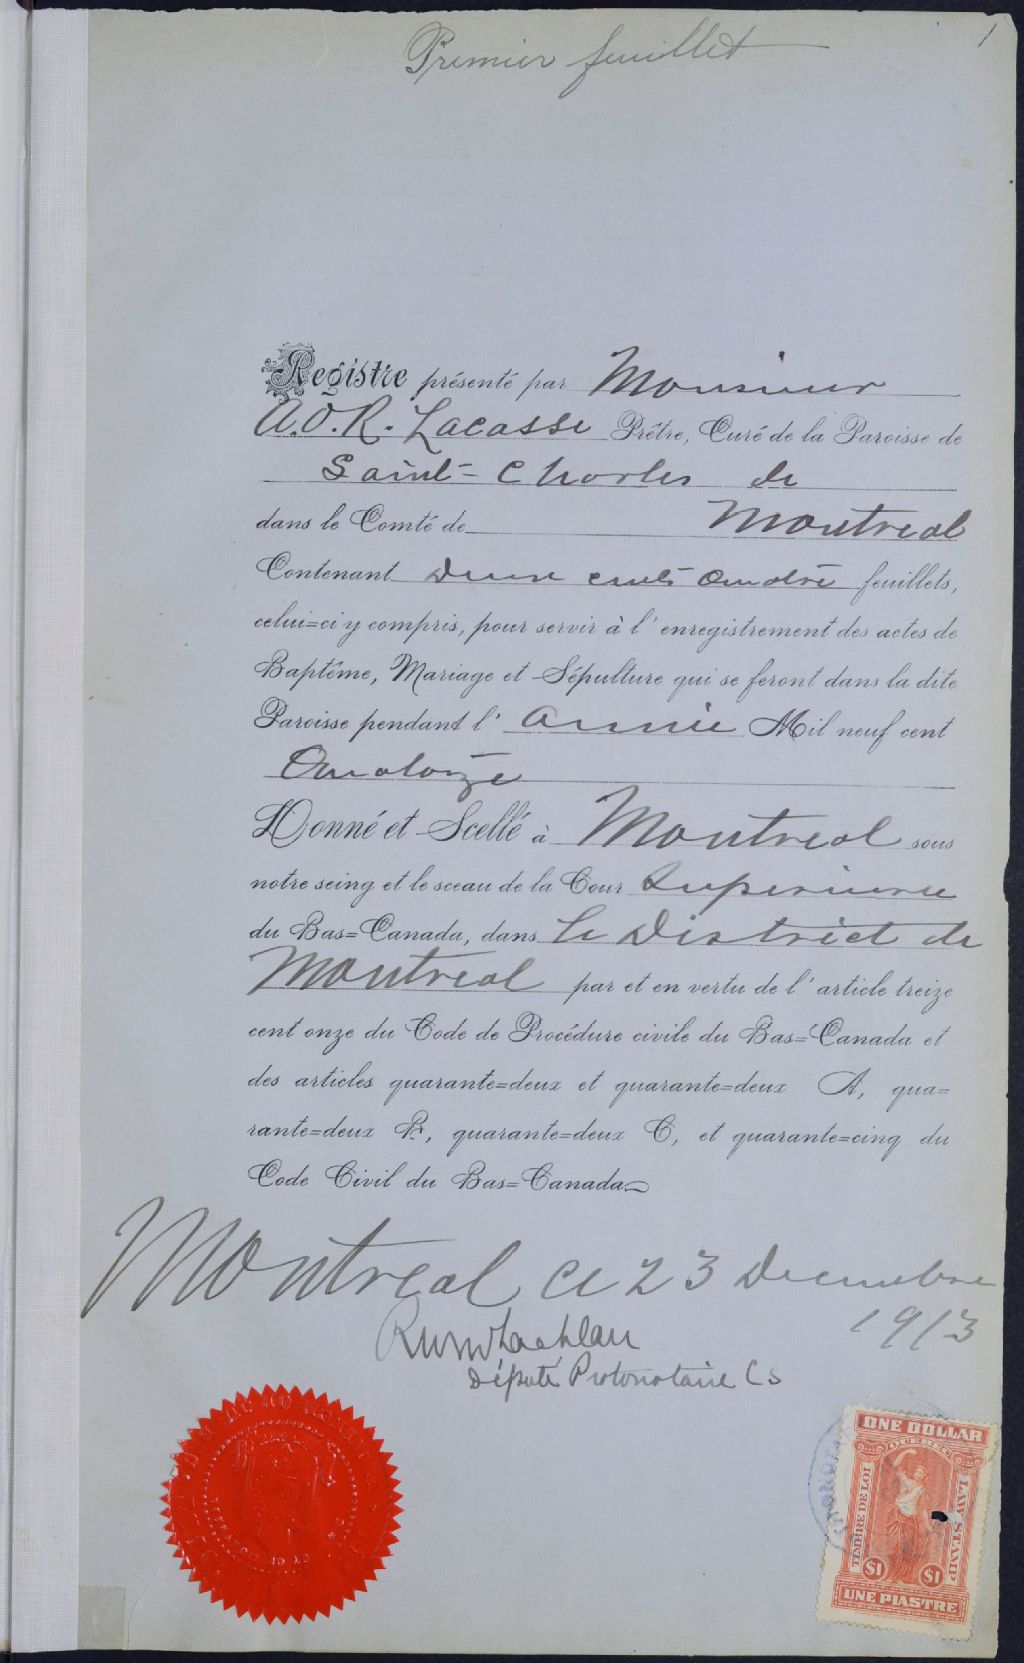 Premier feuillet
1
Registre présenté par Monsieur
A.O.R. Lacasse Prêtre, Curé de la Paroisse de
Saint-Charles de
dans le Comté de Montreal
Contenant Deux cents feuillets,
celui=ci y compris, pour servir à l'enregistrement des actes de
Baptême, Mariage et Sépulture qui se feront dans la dite
Paroisse pendant l'annee Mil neuf cent
Quatorze
Donné et Scellé à Montreal sous
notre seing et le sceau de la Cour Superieure
du Bas=Canada, dans le District de
Montreal par et en vertu de l'article treize
cent onze du Code de Procédure civile du Bas=Canada et
des articles quarante=deux et quarante=deux A, qua=
rante=deux B, quarante=deux C, et quarante=cinq du
Code Civil du Bas=Canada
Montreal ce 23 Decembre
1913
Député Protonotaire C S
ONE DOLLAR
QUEBEC
TIMBRE DE LOI
LAW STAMP
$1 $1
UNE PIASTRE